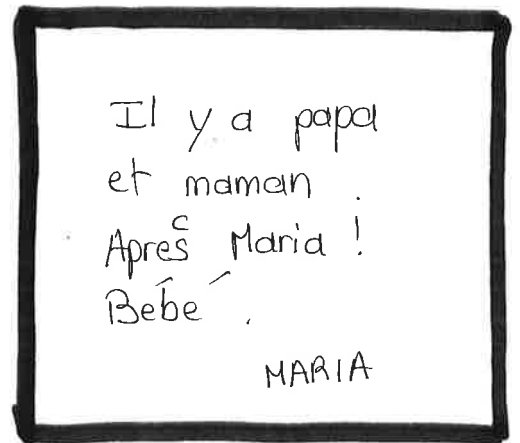 Il y a papa
et maman.
Après c Maria !
Bébé.
MARIA